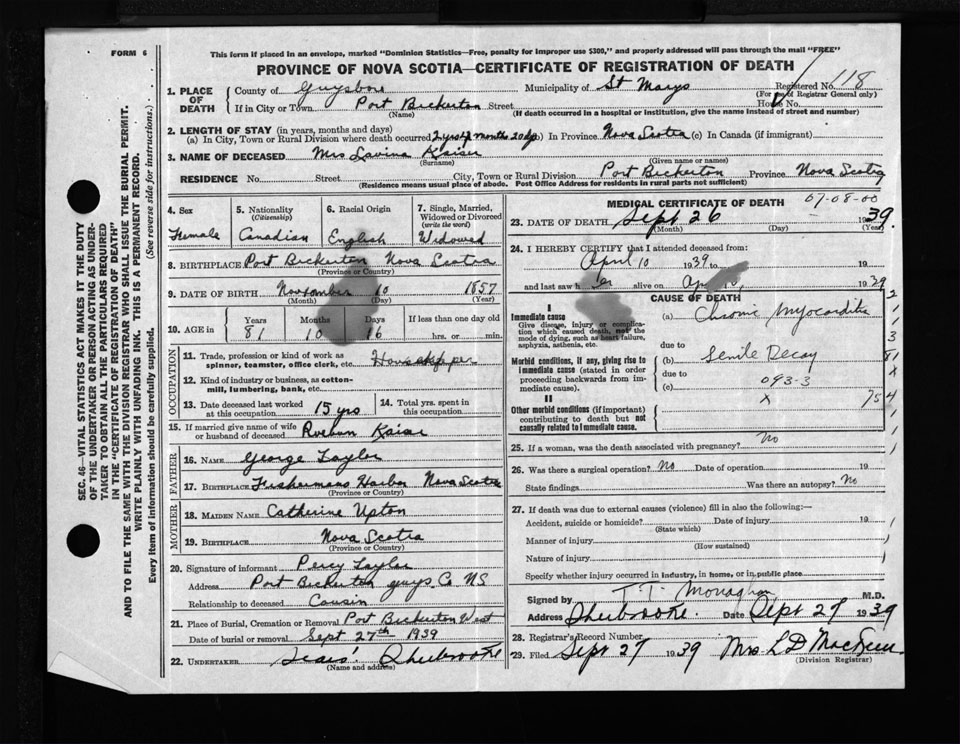 FORM 6
This form if placed in an envelope, marked "Dominion Statistics—Free, penalty for improper use $300," and properly addressed will pass through the mail "FREE"
PROVINCE OF NOVA SCOTIA—CERTIFICATE OF REGISTRATION OF DEATH
SEC. 46—VITAL STATISTICS ACT MAKES IT THE DUTY
OF THE UNDERTAKER OR PERSON ACTING AS UNDER-
TAKER TO OBTAIN ALL THE PARTICULARS REQUIRED
IN THE "CERTIFICATE OF REGISTRATION OF DEATH"
AND TO FILE THE SAME WITH THE DIVISION REGISTRAR WHO SHALL ISSUE THE BURIAL PERMIT.
WRITE PLAINLY WITH UNFADING INK. THIS IS A PERMANENT RECORD.
Every item of information should be carefully supplied. (See reverse side for instructions.)
1. PLACE OF DEATH County of Guysboro Municipality of St Marys Registered No. 118
(For use of Registrar General only)
If in City or Town Port Bickerton Street House No.
(Name) (If death occurred in a hospital or institution, give the name instead of street and number)
2. LENGTH OF STAY (in years, months and days)
(a) In City, Town or Rural Division where death occurred (b) In Province Nova Scotia (c) In Canada (if immigrant)
3. NAME OF DECEASED Mrs Lavina Kaiser
(Surname) (Given name or names)
RESIDENCE No. Street City, Town or Rural Division Port Bickerton Province Nova Scotia
(Residence means usual place of abode. Post Office Address for residents in rural parts not sufficient)
4. Sex Female
5. Nationality (Citizenship) Canadian
6. Racial Origin English
7. Single, Married, Widowed or Divorced (write the word) Widowed
8. BIRTHPLACE Port Bickerton Nova Scotia
(Province or Country)
9. DATE OF BIRTH November 10 1857
(Month) (Day) (Year)
10. AGE in Years 81 Months 10 Days 16 If less than one day old hrs. or min.
OCCUPATION
11. Trade, profession or kind of work as spinner, teamster, office clerk, etc.
12. Kind of industry or business, as cotton-mill, lumbering, bank, etc.
13. Date deceased last worked at this occupation 15 yrs 14. Total yrs. spent in this occupation
15. If married give name of wife or husband of deceased
FATHER
16. NAME George Taylor
17. BIRTHPLACE Fishermans Harbor Nova Scotia
(Province or Country)
MOTHER
18. MAIDEN NAME Catherine Upton
19. BIRTHPLACE Nova Scotia
(Province or Country)
20. Signature of informant Percy Taylor
Address Port Bickerton Guys Co NS
Relationship to deceased Cousin
21. Place of Burial, Cremation or Removal Port Bickerton West
Date of burial or removal Sept 27th 1939
22. UNDERTAKER Sears' Sherbrooke
(Name and address)
MEDICAL CERTIFICATE OF DEATH 07-08-00
23. DATE OF DEATH Sept 26 1939.
(Month) (Day) (Year)
24. I HEREBY CERTIFY that I attended deceased from:
April 10 1939 to 19
and last saw her alive on 1939
CAUSE OF DEATH
I
Immediate cause
Give disease, injury or complication which caused death, not the mode of dying, such as heart failure, asphyxia, asthenia, etc.
(a) Chronic Myocarditis
due to
Morbid conditions, if any, giving rise to immediate cause (stated in order proceeding backwards from immediate cause).
(b) Senile Decay
due to
(c) 093-3
II
Other morbid conditions (if important) contributing to death but not causally related to immediate cause.
X 754
25. If a woman, was the death associated with pregnancy? no
26. Was there a surgical operation? No Date of operation 19
State findings Was there an autopsy? No
27. If death was due to external causes (violence) fill in also the following:—
Accident, suicide or homicide? Date of injury 19
(State which)
Manner of injury
(How sustained)
Nature of injury
Specify whether injury occurred in industry, in home, or in public place
Signed by T. T. Monaghan M.D.
Address Sherbrooke Date Sept 27 1939
28. Registrar's Record Number
29. Filed Sept 27 1939 Mrs. L D
(Division Registrar)